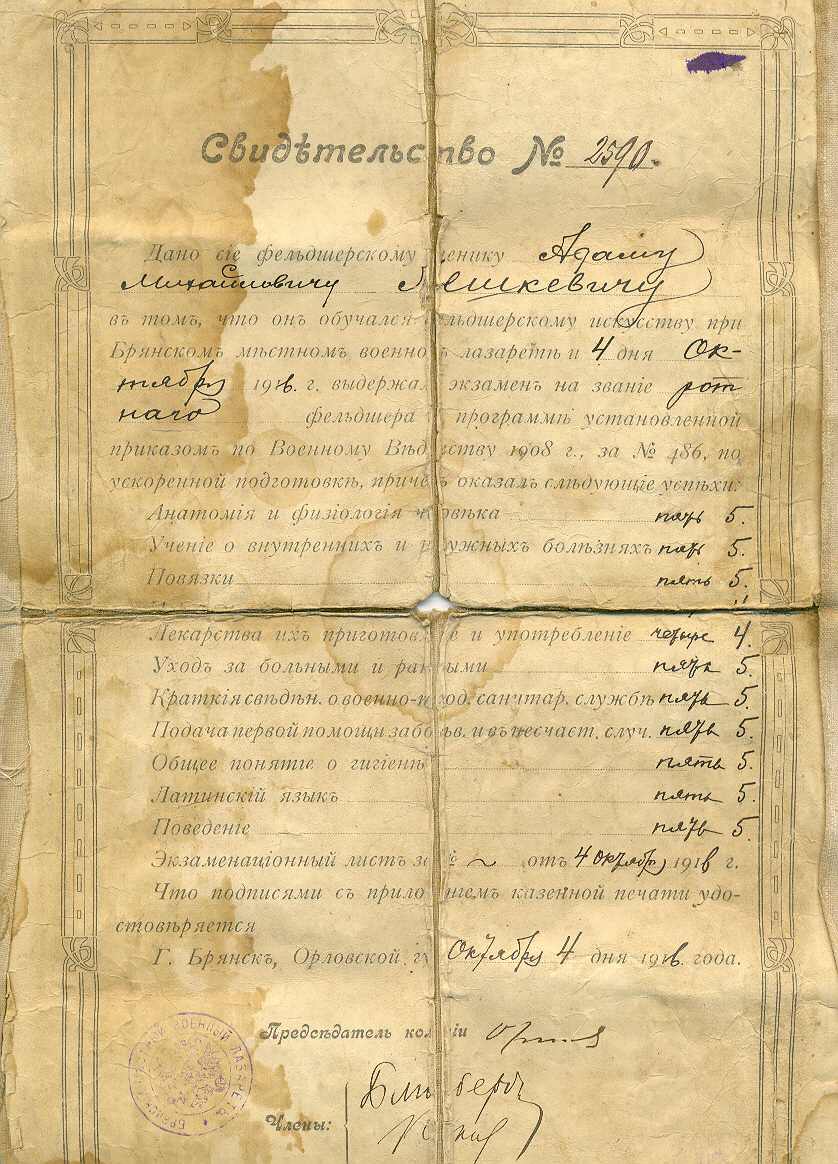 Свидѣтельство № 2590.
Дано сіе фельдшерскому ученику Адаму
Михайловичу Мешкевичу
въ томъ, что онъ обучался фельдшерскому искусству при
Брянскомъ мѣстномъ военномъ лазаретѣ и 4 дня Ок-
тября 1916 г. выдержалъ экзаменъ на званіе рот
наго фельдшера программѣ установленной
приказомъ по Военному Вѣдомству 1908 г., за № 486, по
ускоренной подготовкѣ, причемъ оказалъ слѣдующіе успѣхи:
Анатомія и физіологія человѣка пять 5.
Ученіе о внутреннихъ и наружныхъ болѣзняхъ пять 5.
Повязки пять 5.
Лекарства ихъ приготовленіе и употребленіе четыре 4.
Уходъ за больными и ранеными пять 5.
Краткія свѣдѣн. о военно-поход. санитар. службѣ пять 5.
Подача первой помощи заболѣв. и въ несчаст. случ. пять 5.
Общее понятіе о гигіенѣ пять 5.
Латинскій языкъ пять 5.
Поведеніе пять 5.
Экзаменаціонный листъ за № ~ отъ 4 октября 1916 г.
Что подписями съ приложеніемъ казенной печати удо-
стовѣряется
Г. Брянскъ, Орловской губ. Октября 4 дня 1916. года.
Предсѣдатель комиссіи
Члены: